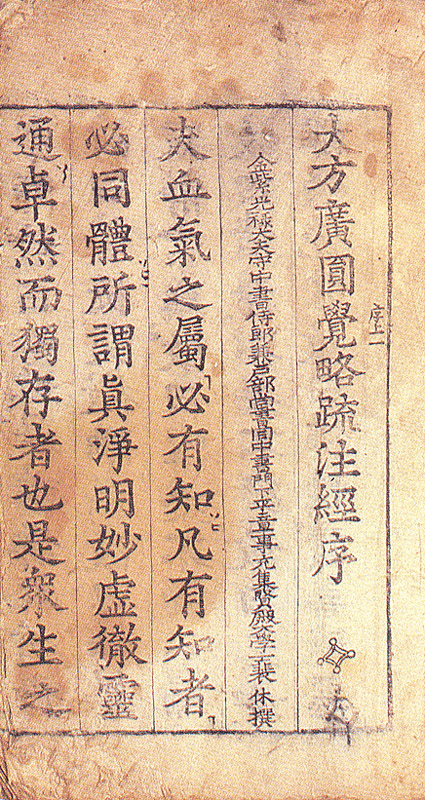 大方廣圓覺略疏注經序
金紫光祿大夫守中書侍郎兼戶部尚書同中書門下平章事充集賢殿大學士裴休撰
夫血氣之屬必有知凡有知者
必同體所謂眞淨明妙虛徹靈
通卓然而獨存者也是衆生之